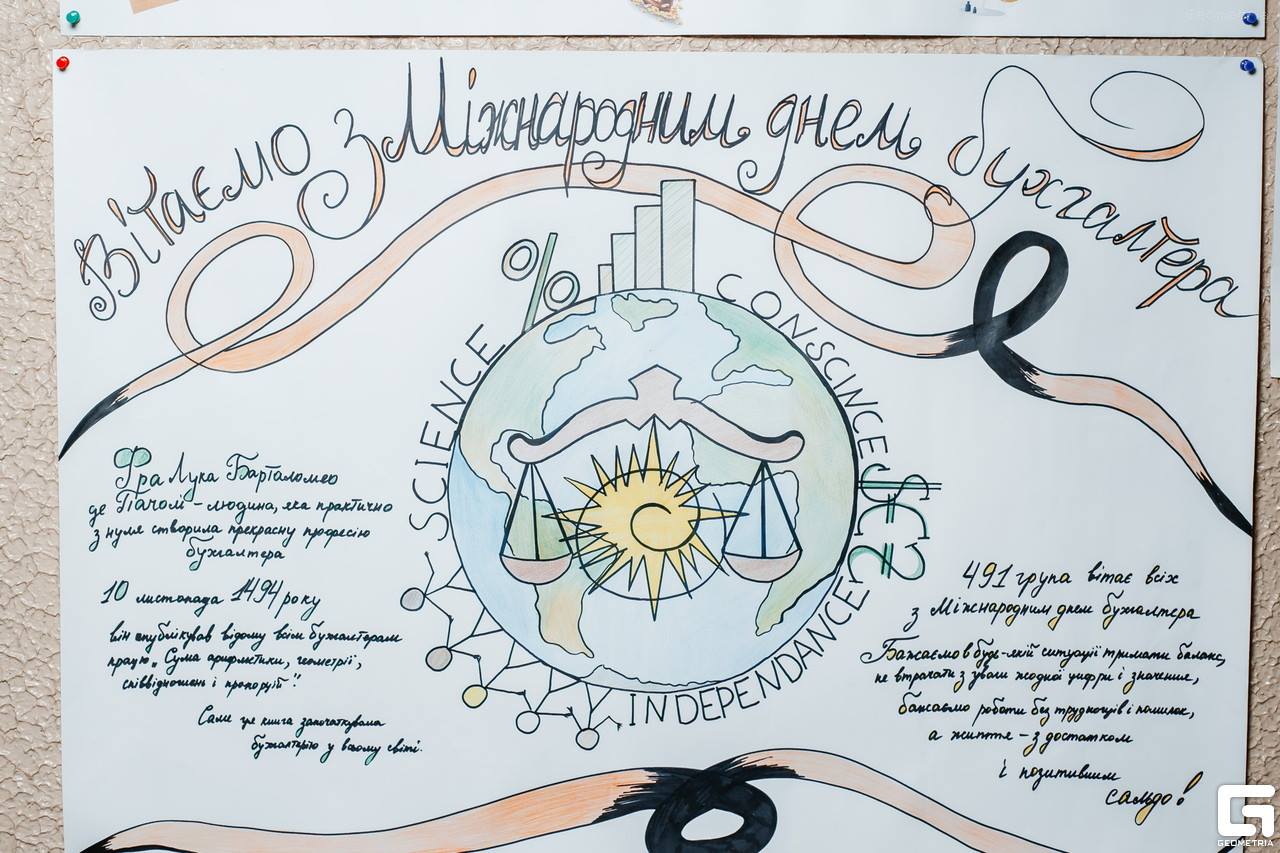 Вітаємо з Міжнародним днем бухгалтера
%
SCIENCE
CONSCINCE
INDEPENDANCE
Фра Лука Барталомео
де Пачолі – людина, яка практично
з нуля створила прекрасну професію
бухгалтера
10 листопада 1494 року
він опублікував відому всім бухгалтерам
працю „Сума арифметики, геометрії,
співвідношень і пропорцій".
Саме ця книга започаткувала
бухгалтерію у всьому світі.
491 група вітає всіх
з Міжнародним днем бухгалтера
Бажаємо в будь-якій ситуації тримати баланс,
не втрачати з уваги жодної цифри і значення,
бажаємо роботи без труднощів і помилок,
а життя – з достатком
і позитивним
сальдо!
GEOMETRIA